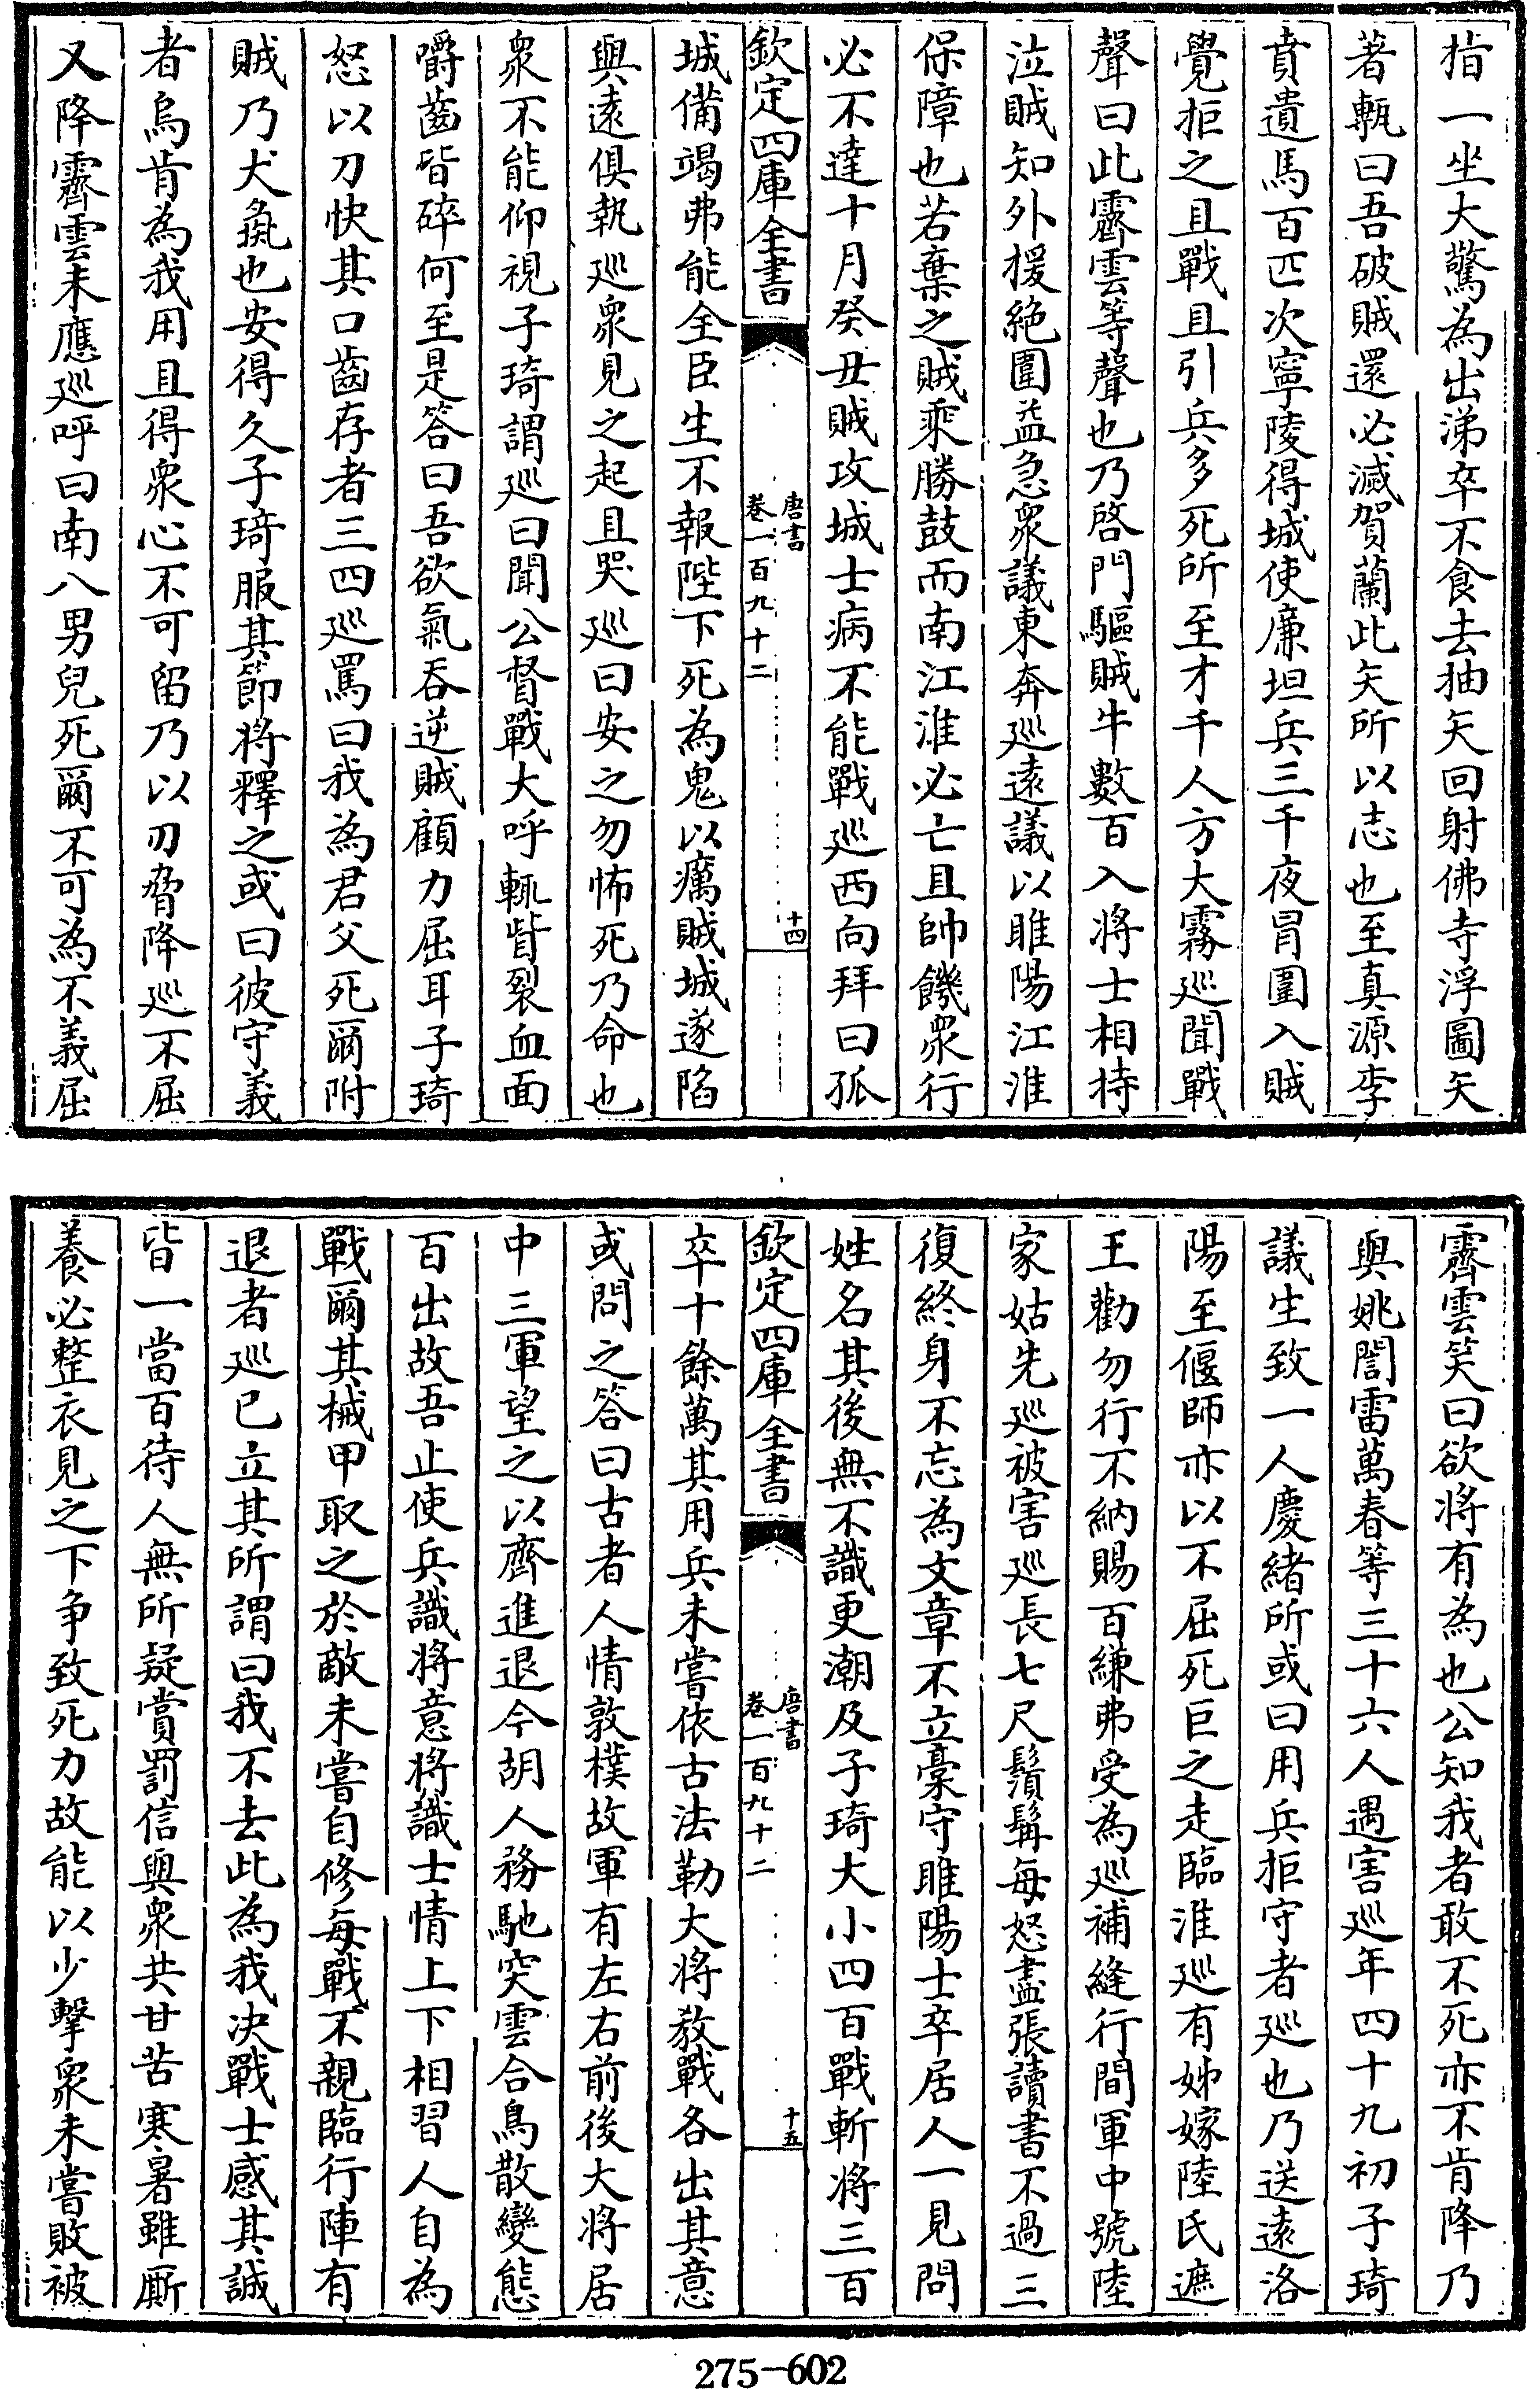 指一坐大驚為出涕卒不食去抽矢回射佛寺浮圖矢
著甎曰吾破賊還必滅賀蘭此矢所以志也至真源李
賁遺馬百匹次寧陵得城使廉坦兵三千夜冒圍入賊
覺拒之且戰且引兵多死所至才千人方大霧巡聞戰
聲曰此霽雲等聲也乃啓門驅賊牛數百入將士相持
泣賊知外援絶圍益急衆議東奔巡遠議以睢陽江淮
保障也若棄之賊乘勝鼓而南江淮必亡且帥饑衆行
必不達十月癸丑賊攻城士病不能戰巡西向拜曰孤
欽定四庫全書
唐書
卷一百九十二
十四
城備竭弗能全臣生不報陛下死為鬼以癘賊城遂陷
與遠俱執巡衆見之起且哭巡曰安之勿怖死乃命也
衆不能仰視子琦謂巡曰聞公督戰大呼輒眥裂血面
嚼齒皆碎何至是答曰吾欲氣吞逆賊顧力屈耳子琦
怒以刀抉其口齒存者三四巡罵曰我為君父死爾附
賊乃犬彘也安得久子琦服其節將釋之或曰彼守義
者烏肯為我用且得衆心不可留乃以刃脅降巡不屈
又降霽雲未應巡呼曰南八男兒死爾不可為不義屈
霽雲笑曰欲將有為也公知我者敢不死亦不肯降乃
與姚誾雷萬春等三十六人遇害巡年四十九初子琦
議生致一人慶緒所或曰用兵拒守者巡也乃送遠洛
陽至偃師亦以不屈死巨之走臨淮巡有姊嫁陸氏遮
王勸勿行不納賜百縑弗受為巡補縫行間軍中號陸
家姑先巡被害巡長七尺鬚髯每怒盡張讀書不過三
復終身不忘為文章不立稾守睢陽士卒居人一見問
姓名其後無不識更潮及子琦大小四百戰斬將三百
欽定四庫全書
唐書
卷一百九十二
十五
卒十餘萬其用兵未嘗依古法勒大將教戰各出其意
或問之答曰古者人情敦樸故軍有左右前後大將居
中三軍望之以齊進退今胡人務馳突雲合鳥散變態
百出故吾止使兵識將意將識士情上下相習人自為
戰爾其械甲取之於敵未嘗自修每戰不親臨行陣有
退者巡已立其所謂曰我不去此為我決戰士感其誠
皆一當百待人無所疑賞罰信與衆共甘苦寒暑雖厮
養必整衣見之下争致死力故能以少擊衆未嘗敗被
275-602